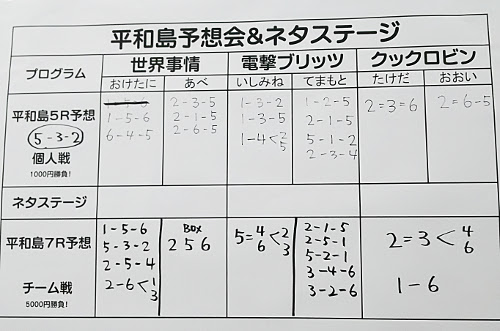 平和島予想会&ネタステージ
プログラム 世界事情 電撃ブリッツ クックロビン
おけたに あべ いしみね てまもと たけだ おおい
平和島5R予想
5-3-2
個人戦
1000円勝負!
1-5-6
6-4-5
2-3-5
2-1-5
2-6-5
1-3-2
1-3-5
1-4<2 5
1-2-5
2-1-5
5-1-2
2-3-4
2=3=6
2=6-5
ネタステージ
平和島7R予想
チーム戦
5000円勝負!
1-5-6
5-3-2
2-5-4
2-6<1 3
BOX
256
5=4 6<2 3
2-1-5
2-5-1
5-2-1
3-4-6
3-2-6
2=3<4 6
1-6